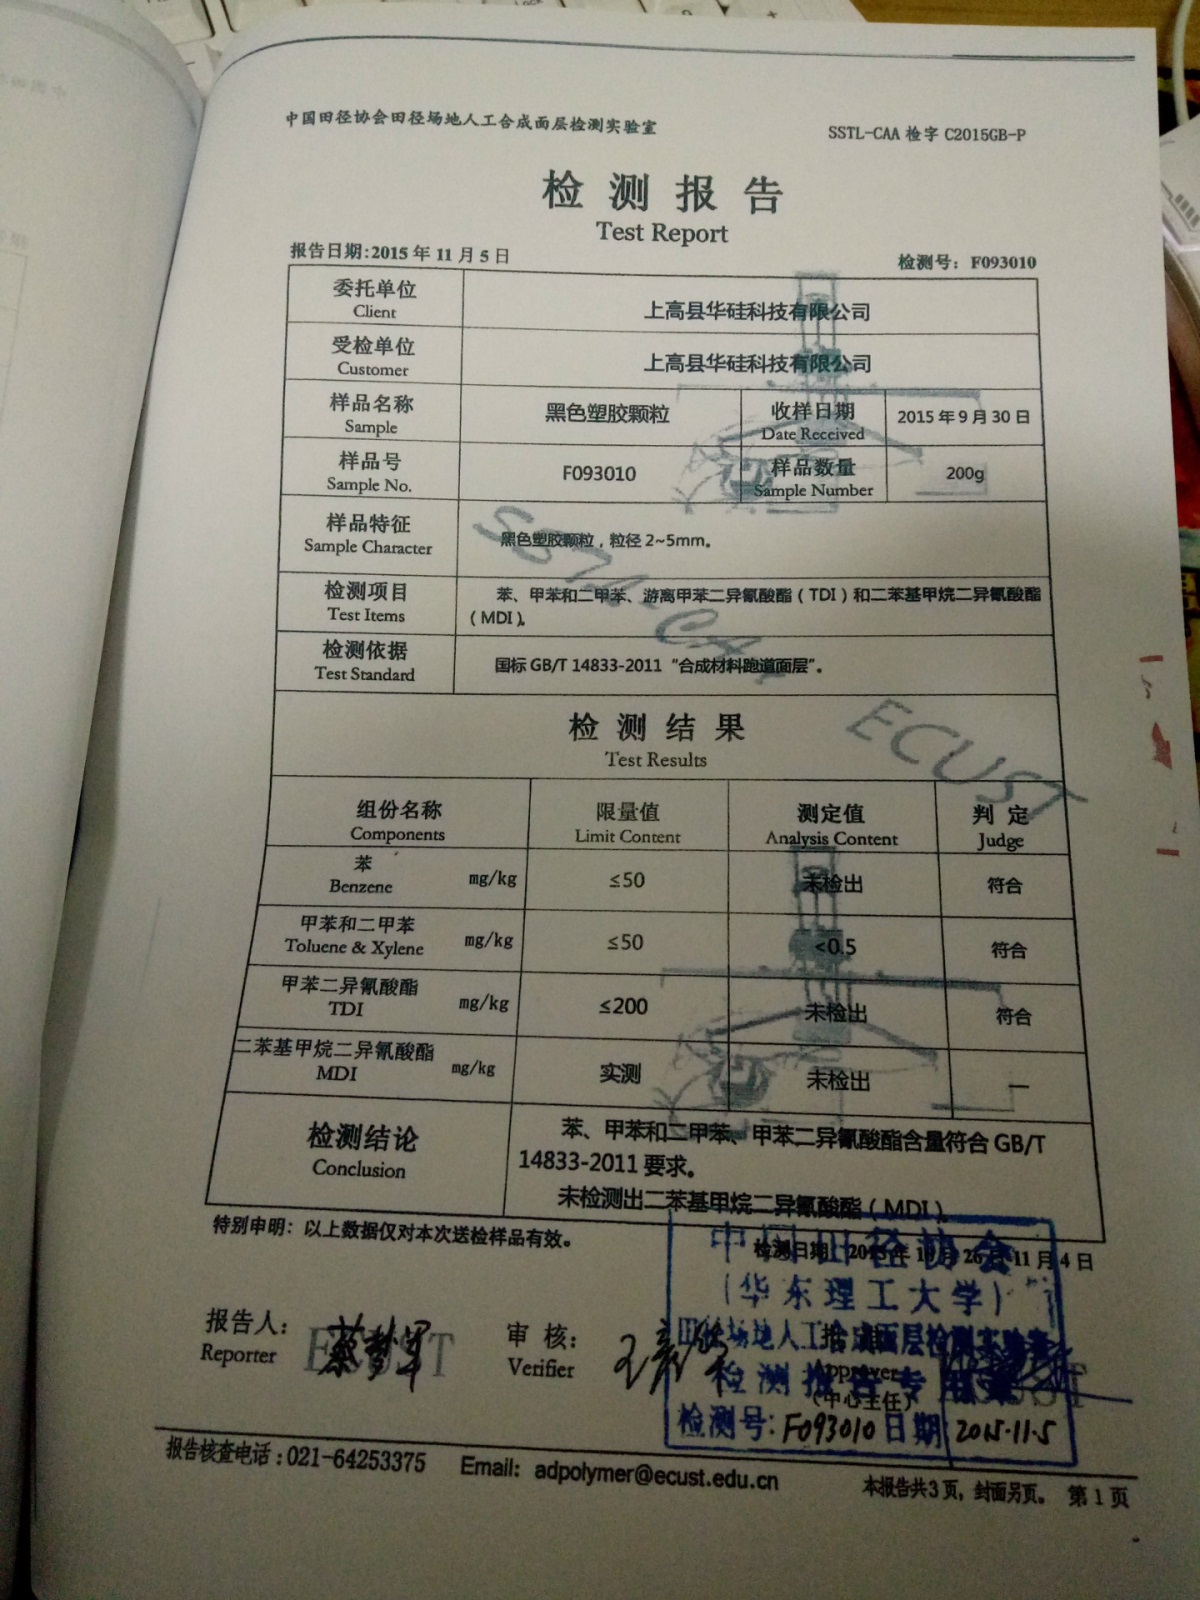 中国田径协会田径场地人工合成面层检测实验室
SSTL-CAA 检字 C2015GB-P
检测报告
Test Report
报告日期:2015年11月5日
检测号: F093010
委托单位
Client
上高县华硅科技有限公司
受检单位
Customer
上高县华硅科技有限公司
样品名称
Sample
黑色塑胶颗粒
收样日期
Date Received
2015年9月30日
样品号
Sample No.
F093010
样品数量
Sample Number
200g
样品特征
Sample Character
黑色塑胶颗粒，粒径 2~5mm。
检测项目
Test Items
苯、甲苯和二甲苯、游离甲苯二异氰酸酯（TDI）和二苯基甲烷二异氰酸酯
（MDI）。
检测依据
Test Standard
国标 GB/T 14833-2011 “合成材料跑道面层”。
ECUST
检测结果
Test Results
组份名称
Components
限量值
Limit Content
测定值
Analysis Content
判定
Judge
苯
Benzene
mg/kg
≤50
未检出
符合
甲苯和二甲苯
Toluene & Xylene
mg/kg
≤50
<0.5
符合
甲苯二异氰酸酯
TDI
mg/kg
≤200
未检出
符合
二苯基甲烷二异氰酸酯
MDI
mg/kg
实测
未检出
—
检测结论
Conclusion
苯、甲苯和二甲苯、甲苯二异氰酸酯含量符合 GB/T
14833-2011 要求。
未检测出二苯基甲烷二异氰酸酯（MDI）。
特别申明：以上数据仅对本次送检样品有效。
中国田径协会
（华东理工大学）
田径场地人工合成面层检测实验室
检测报告专用章
检测号: F093010 日期 2015.11.5
报告人:
Reporter
ECUST
审核:
Verifier
Approver
（中心主任）
报告核查电话:021-64253375
Email: adpolymer@ecust.edu.cn
本报告共3页，封面另页。 第1页